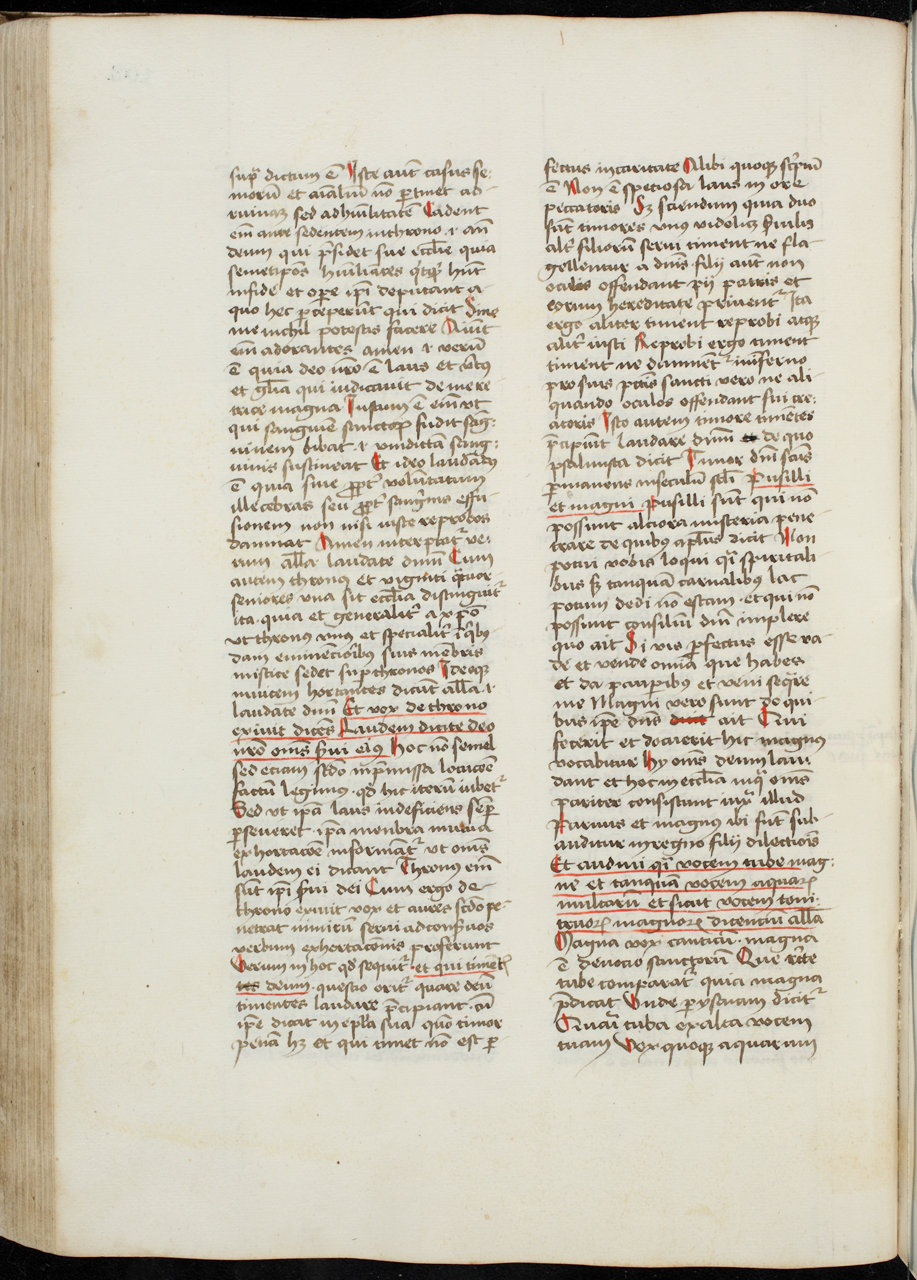 supͣ dictum ē Iste aut̄ casus se⸗
niorū et aīaliū nō ꝑtinet ad
ruinaꝫ sed ad hūilitatē Cadent
em̄ ante sedentem in throno ⁊ an̄
deum qui p̄sidet sue eccl̄ie quia
semetip̄os hūiliantes
in fide et oꝑe ip̄i deputant a
quo hec ꝑceperūt qui dicit Sine
me nichil potestis facere Aiūt
em̄ adorantes amen ⁊ verū
ē quia deo nr̄o ē laus et v̄tꝰ
et gl̄ia qui iudicauit de mere
trice magna Iustum ē em̄ vt
qui sanguinē sanctoꝝ fudit sang⸗
uinem bibat ⁊ vindictā sang⸗
uinis sustineat Et ideo laudādꝰ
ē quia siue ꝓpt̄ voluntatum
illecebras seu ꝓpt̄ sang̾nis effu
sionem non nisi iuste reprobos
damnat Amen interp̄tat᷑ ve⸗
rum all̄a laudate dnm̄ Cum
autem thronꝰ et viginti q̄tuor
seniores vna sit eccl̄ia distinguit᷑
ita quia et generalit᷑ a xp̄o
vt thronus vnꝰ et specialit᷑ ī q̄bꝰ
dam eminēcioribꝰ suis mēbris
mistice sedet sup thronos Ideoqꝫ
inuicem hortantes dicūt all̄a ⁊
laudate dnm̄ Et vox de throno
exiuit dicēs Laudem dicite deo
nr̄o om̄s s̄ui eiꝰ Hoc nō semel
sed etiam sc̄do in p̄missa locucōe
factū legimus qd̄ hic iterū iubet᷑
Sed vt ip̄a laus indeficiens semꝑ
ꝑseueret ip̄a menbra mutua
exhortacōe informāt᷑ vt om̄s
laudem ei dicant Thronus em̄
sūt ip̄i s̄ui dei Cum ergo de
throno exiuit vox et aures
netrat nimirū serui ad conẜuos
verbum exhortacōnis proferunt
Verum in hoc qd̄ sequit᷑ et qui timēt
deum questio orit᷑ quare deū
timentes laudare p̄cipiant cū
ip̄e dicat in epl̄a sua qm̄ timor
penā hꝫ et qui timet nō est ꝑ
fectus in caritate Alibi quoqꝫ sc̄ptū
ē Non ē speciosa laus in ore
peccatoris Sꝫ sciendum quia duo
sūt timores vnꝰ videlicꝫ ẜuilis
alt̾ filiorū serui timent ne fla⸗
gellentur a dn̄is filij aūt non
oculos offendant pij patris et
eorum hereditate priuent᷑ Ita
ergo aliter timent reprobi atqꝫ
alit̾ iusti Reprobi ergo timent
timent ne damnēt᷑ in inferno
pro suis pctīs sancti vero ne ali
quando oculos offendant sui cre⸗
atoris Isto autem timore timētes
p̄cipiūt laudare dnm̄ de quo
psalmista dicit Timor dn̄i sc̄us
ꝑmanens in seculum scl̄i Pusilli
et magni Pusilli sūt qui nō
possunt alciora misteria pene
trare de quibus apl̄us dicit Non
potui vobis loqui q̄si spiritali
bus sꝫ tanquā carnalibus lac
potum dedi nō escam et qui nō
possunt consiliū dnī implere
quo ait Si vis ꝑfectus esse va
de et vende omīa que habes
et da pauperibus et veni seq̄re
me Magni vero sunt de qui
bus ip̄e dn̄s ait Qui
fecerit et docuerit hic magnus
vocabitur Hy om̄s deum lau
dant et hoc in eccl̄ia in q̄ om̄s
pariter consistunt iux̄ illud
Paruus et magnus ibi sūt sub⸗
auditur in regno filij dilectiōis
Et audiui q̄si vocem tube mag⸗
ne et tanquā vocem aquaꝝ
multarū et sicut vocem toni⸗
truoꝝ magnoꝝ dicentiū all̄a
Magna vox canticū magna
ē deuocio sanctorum Que rite
tube comparat᷑ quia magna
p̄dicat Vnde ꝑ ysaiam dicit᷑
Quasi tuba exalta vocem
tuam Vox quoqꝫ aquarum